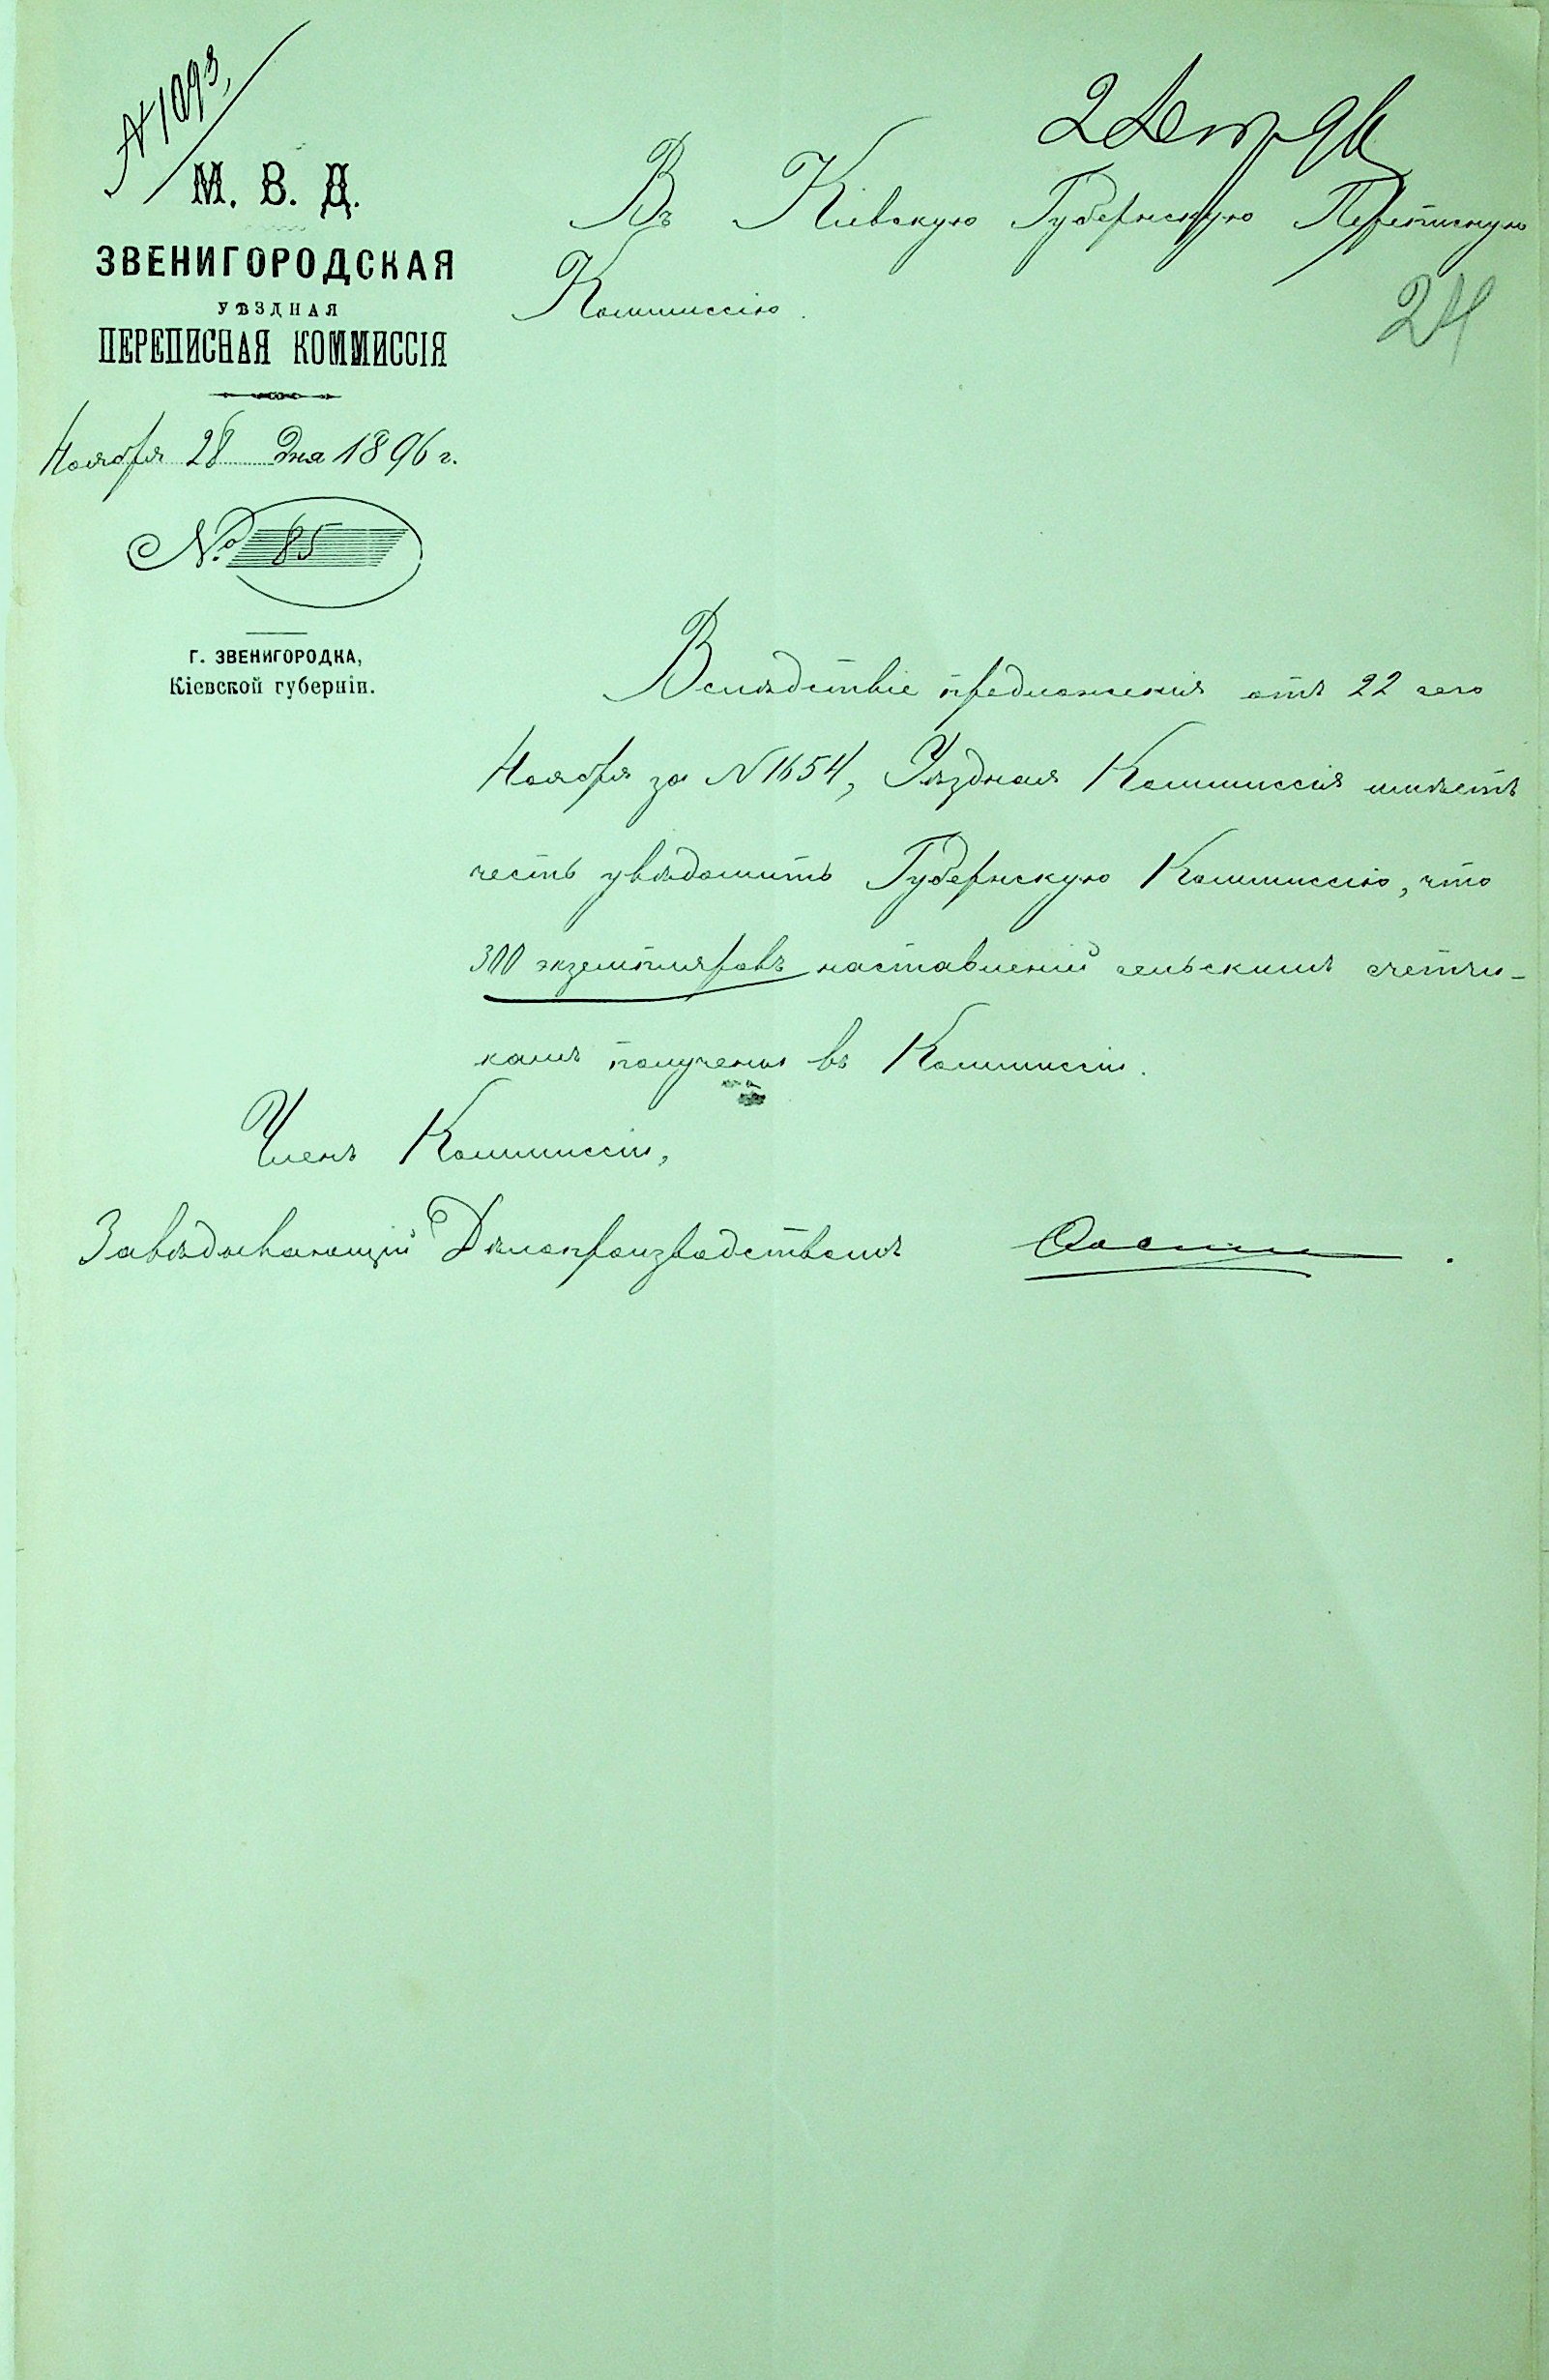 № 1093,
М. В. Д.
ЗВЕНИГОРОДСКАЯ
УѢЗДНАЯ
ПЕРЕПИСНАЯ КОММИССІЯ
Ноября 28 дня 1896 г.
№ 85
Г. ЗВЕНИГОРОДКА,
Кіевской губерніи.
24
Въ Кіевскую Губернскую Переписную
Коммиссію.
Вслѣдствіе предложенія отъ 22 сего
Ноября за N 1654, Уѣздная Коммиссія имѣетъ
честь увѣдомить Губернскую Коммиссію, что
300 экземпляровъ наставленій сельскимъ счетчи-
камъ получены въ Коммиссіи.
Членъ Коммиссіи,
Завѣдывающій Дѣлопроизводствомъ